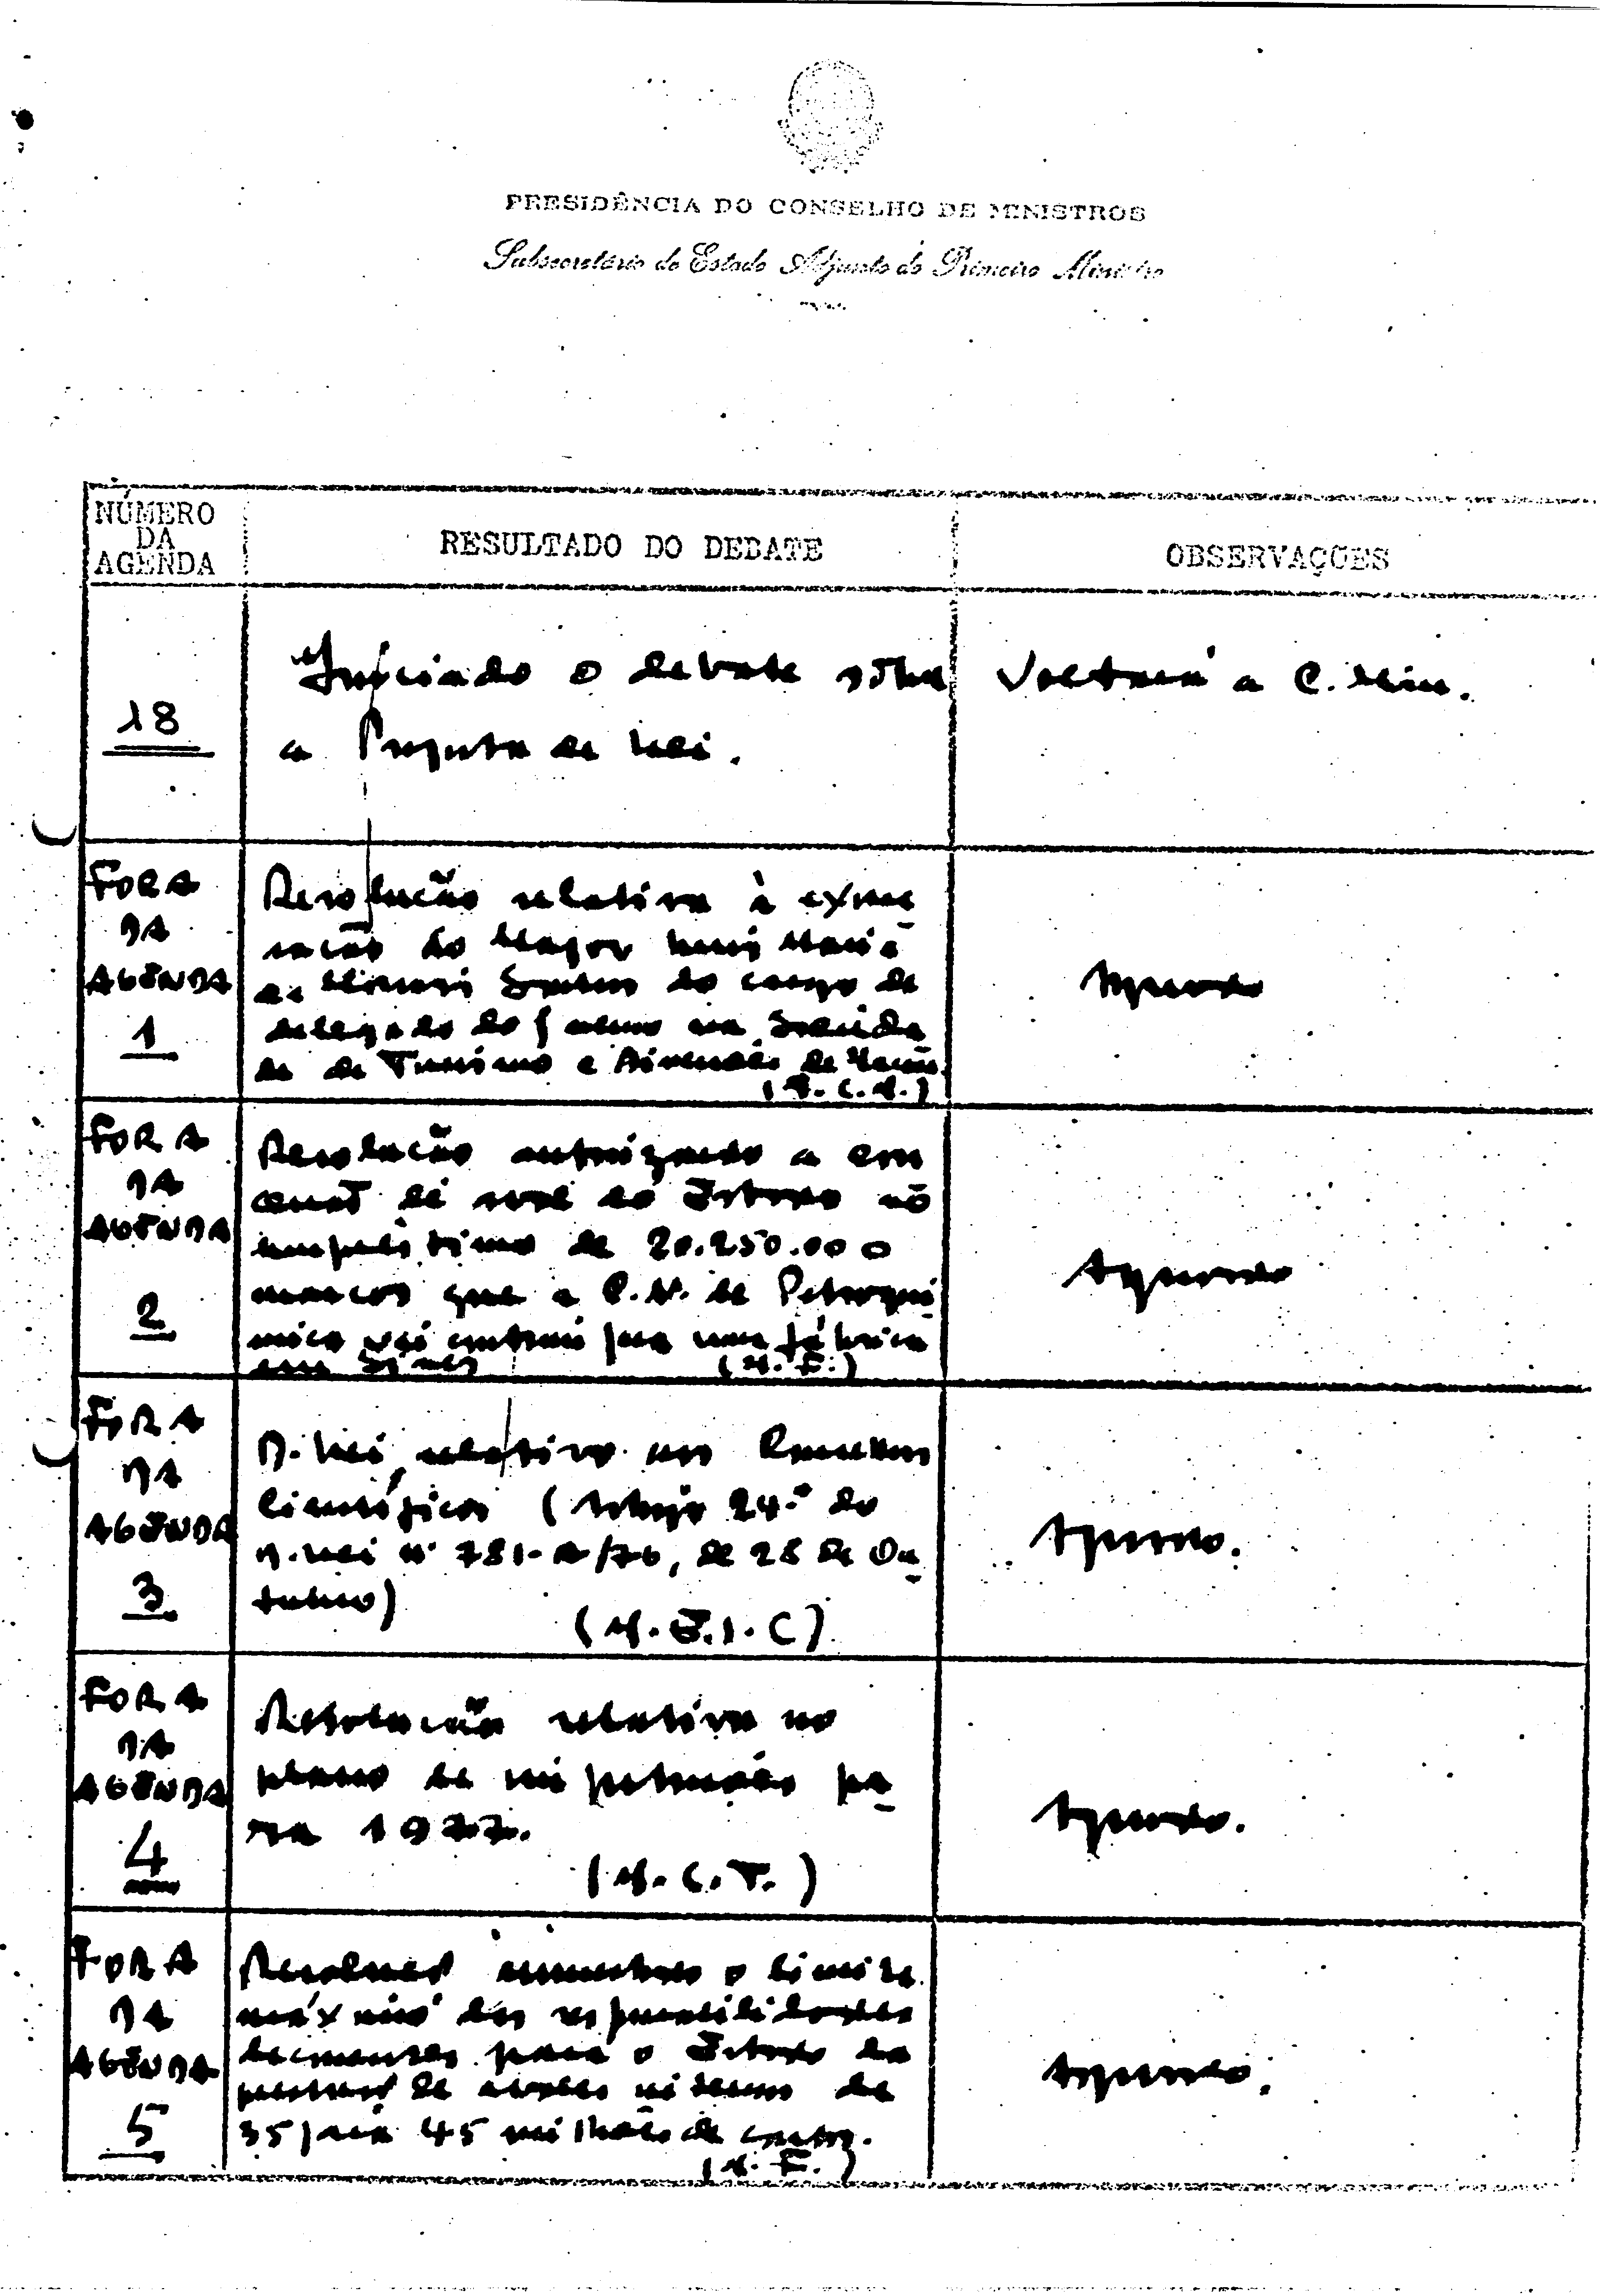 PRESIDÊNCIA DO CONSELHO DE MINISTROS
Subsecretário de Estado Adjunto do Primeiro Ministro
NÚMERO
DA
AGENDA
RESULTADO DO DEBATE
OBSERVAÇÕES
18
Iniciado o debate sobre
a Proposta de Lei.
Voltará a C. Min.
FORA
DA
AGENDA
1
Resolução relativa à exone
ração do Major
de do cargo de
delegado do Governo na Socieda
de de Turismo e de
FORA
DA
AGENDA
2
Resolução autorizando a con
cessão de aval do Estado ao
empréstimo de 20.250.000
marcos que a C. N. de Petroqui
mica vai contrair para uma fábrica
em Sines (M. F.)
Aprovado
FORA
DA
AGENDA
3
D. Lei relativo aos
Científicos (Artigo 24.º do
D. Lei nº 781-A/76, de 28 de Ou
tubro)
(M. E. I. C)
Aprovado.
FORA
DA
AGENDA
4
Resolução relativa ao
plano de importações pa
ra 1977.
(M. C. T.)
Aprovado.
FORA
DA
AGENDA
5
Resolução aumentando o limite
máximo das responsabilidades
decorrentes para o Estado da
prestação de avales internos de
35 para 45 milhões de contos.
(M. F.)
Aprovado.